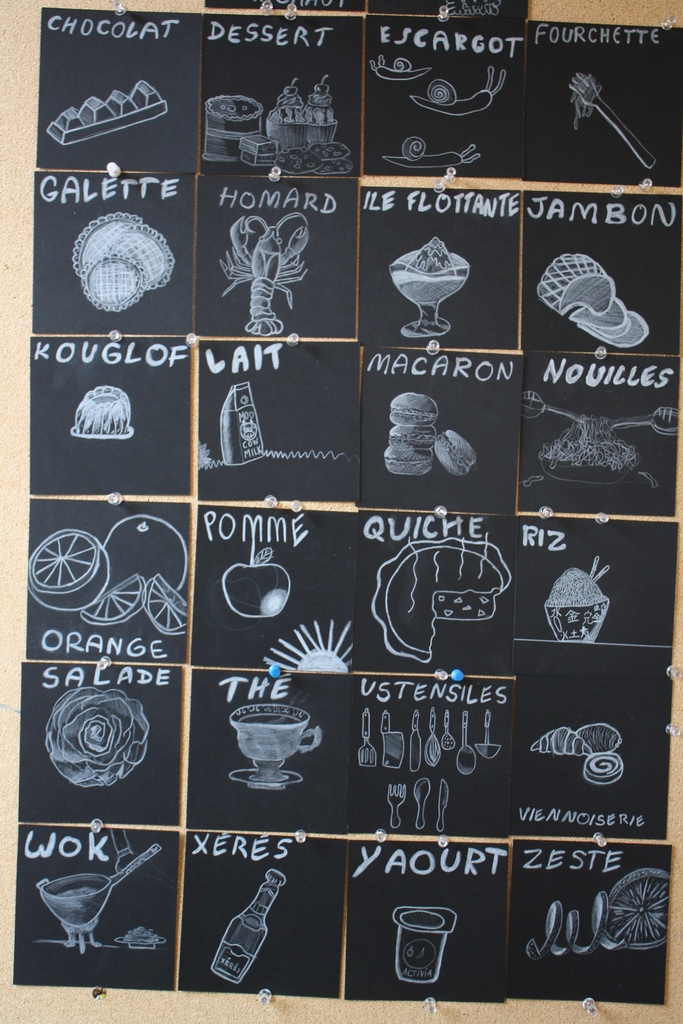 CHOCOLAT
DESSERT
ESCARGOT
FOURCHETTE
GALETTE
HOMARD
ILE FLOTTANTE
JAMBON
KOUGLOF
LAIT
MOO
COW
MILK
MACARON
NOUILLES
ORANGE
POMME
QUICHE
RIZ
SALADE
THÉ
USTENSILES
VIENNOISERIE
WOK
XÉRÉS
XÉRÉS
YAOURT
ACTIVIA
ZESTE